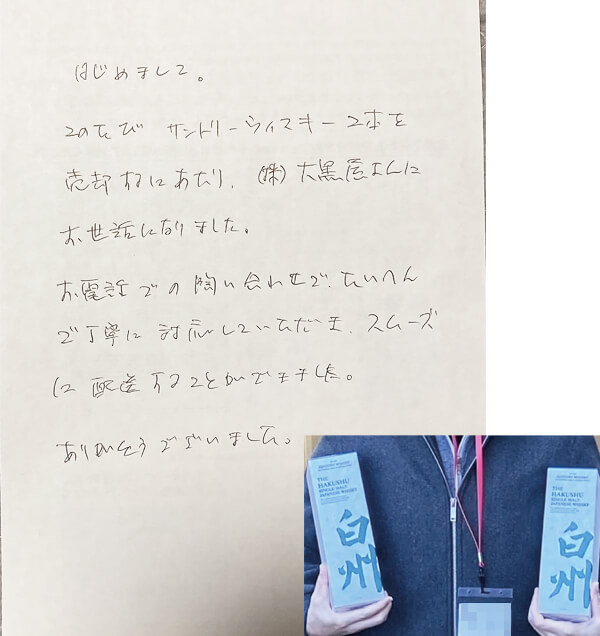 はじめまして。
このたび サントリーウィスキー 2本を
売却するにあたり、(株)大黒屋さんに
お世話になりました。
お電話での問い合わせで、たいへん
ご丁寧に対応していただき、スムーズ
に配送することができました。
ありがとうございました。
THE
HAKUSHU
SINGLE MALT
JAPANESE WHISKY
白州
THE
HAKUSHU
SINGLE MALT
JAPANESE WHISKY
白州